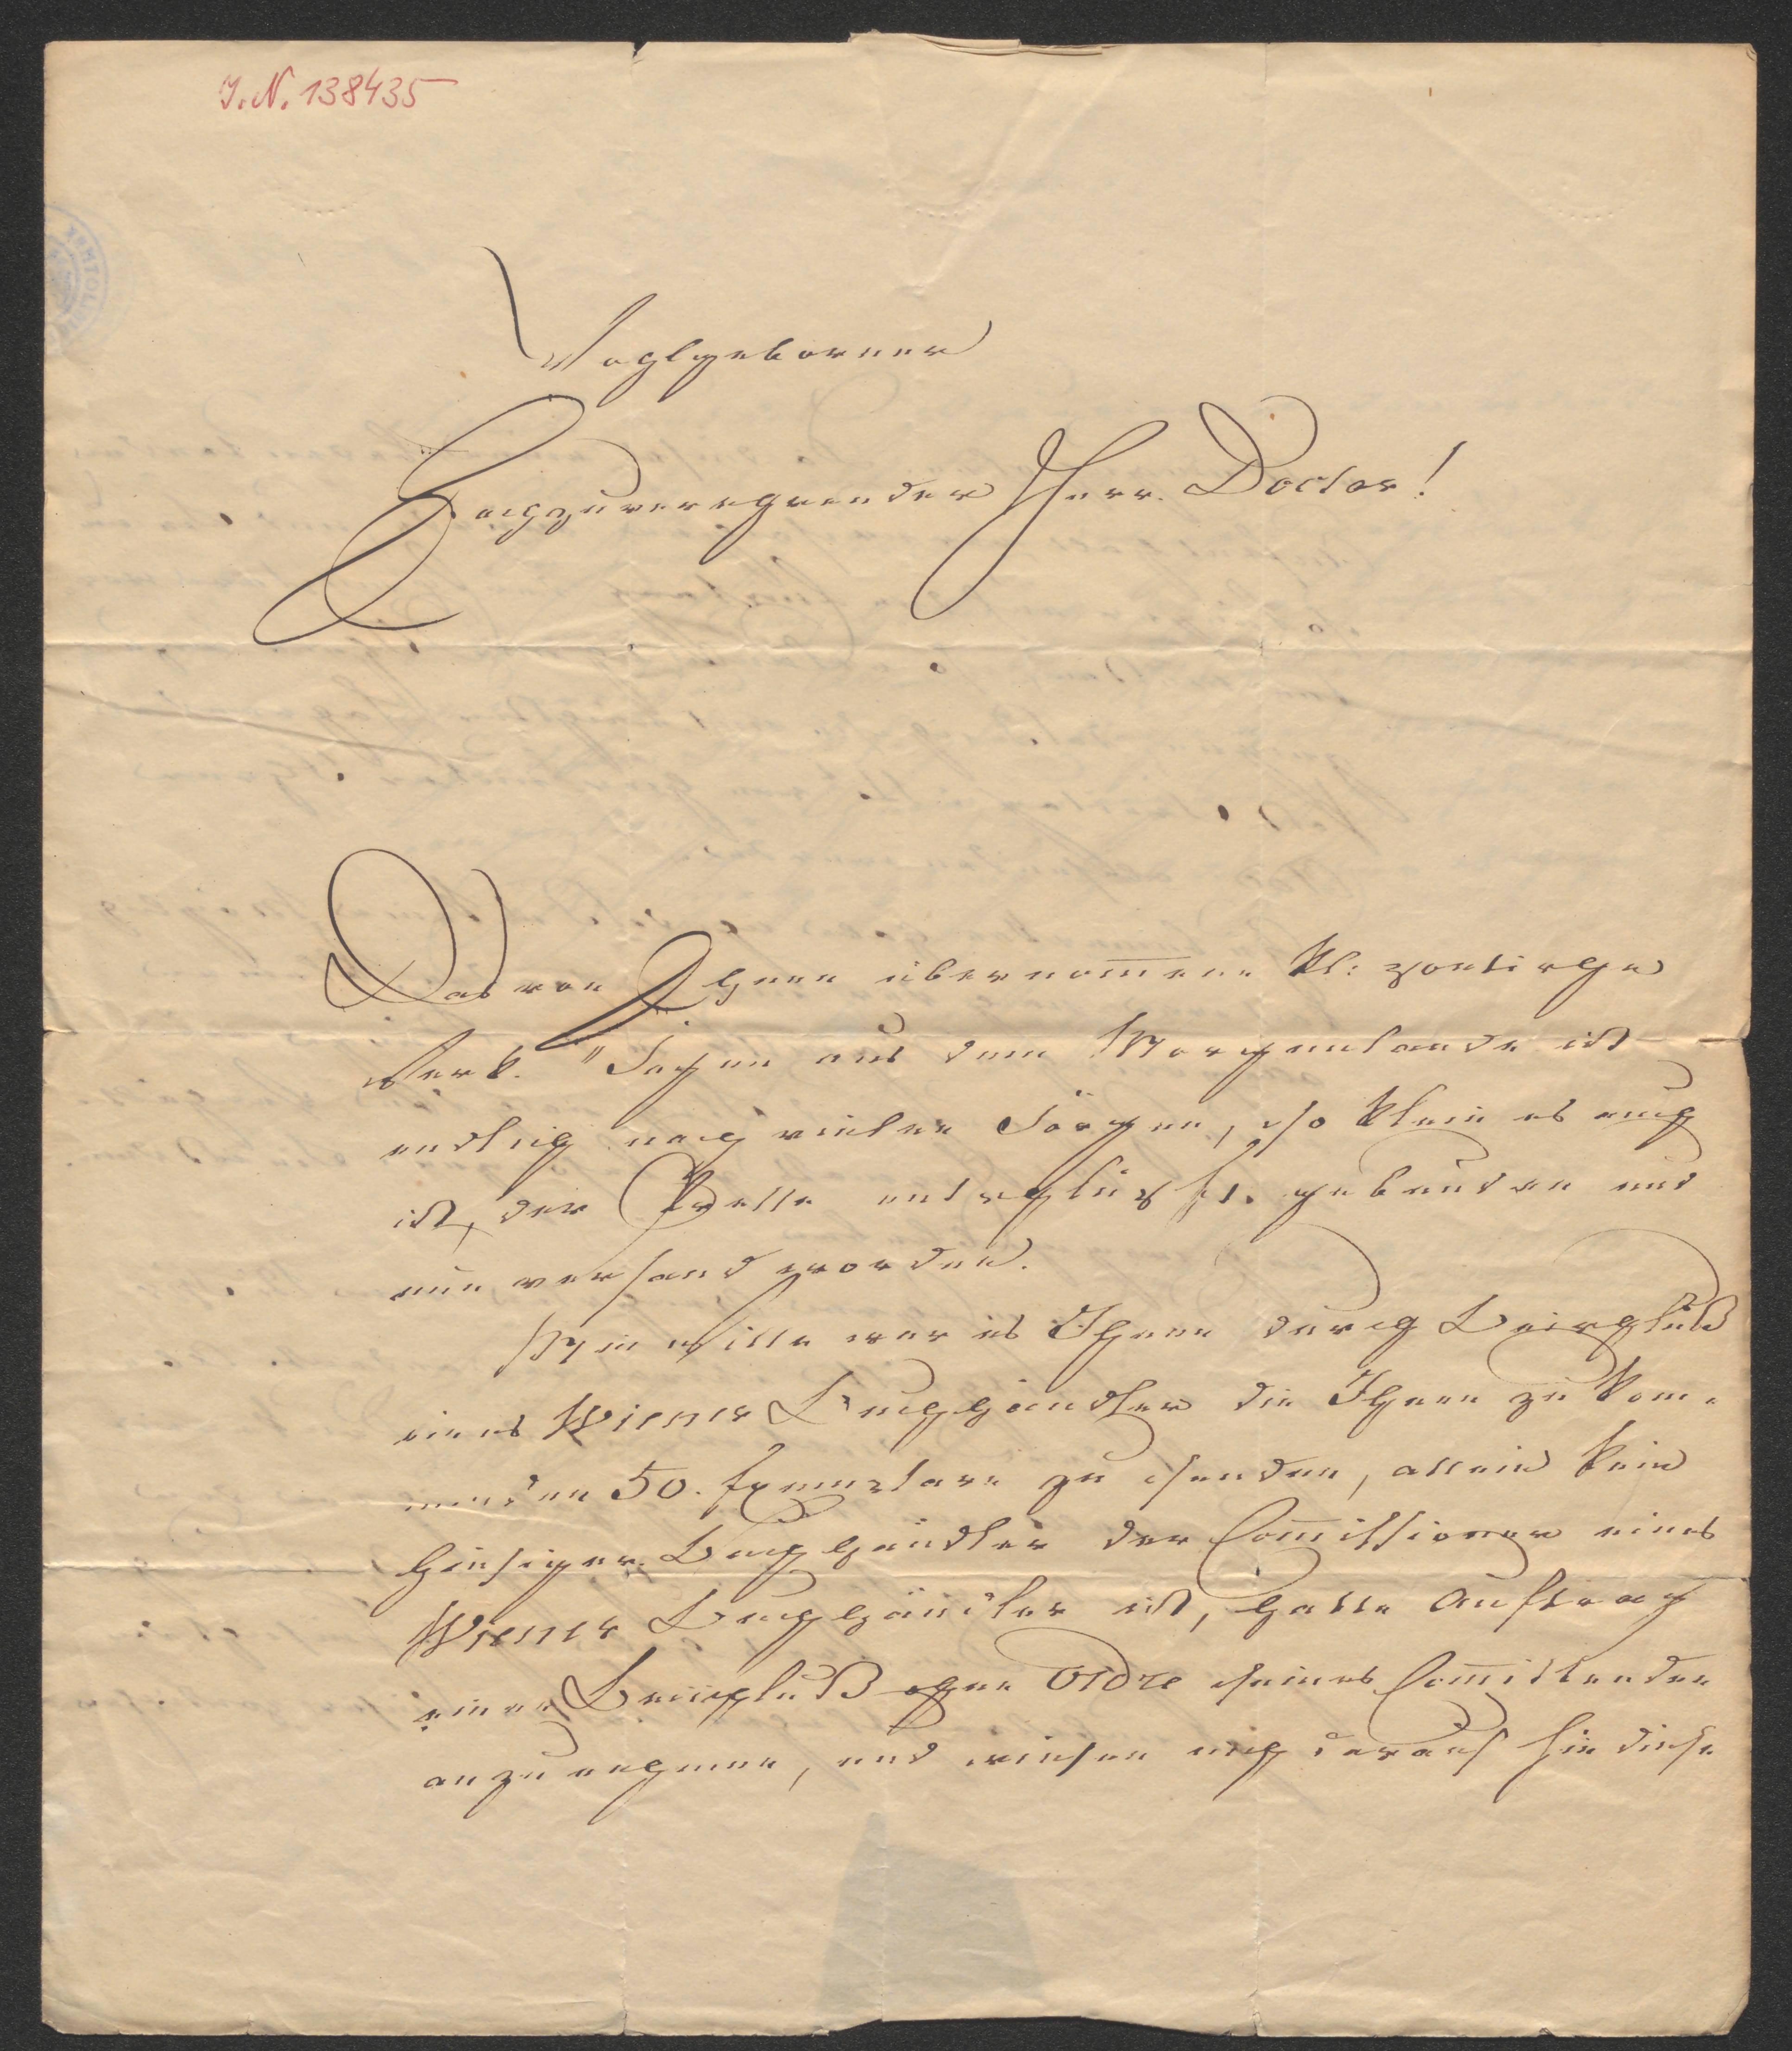 I.N. 138435
Wohlgeborner
Hochzuverehrender Herr Doctor!
Das von Ihnen übernom̅ene kl: poetische
Werk "Sagen aus dem Morgenlande ist
endlich nach vielen Sorgen, so klein es auch
ist, der Presse entschlüpft, gebunden und
nun versand worden.
Mein Wille war es Ihnen durch Beischluß
eines Wiener Buchhändler die Ihnen zu kom-
menden 50. Exemplare zu senden, allein kein
hiesiger Buchhändler der Com̅issionär eines
Wiener Buchhändler ist, hatte Auftrag
einen Beischluß ohne Ordre seines Com̅ittenden
anzunehmen, und wiesen mich darauf hin diese